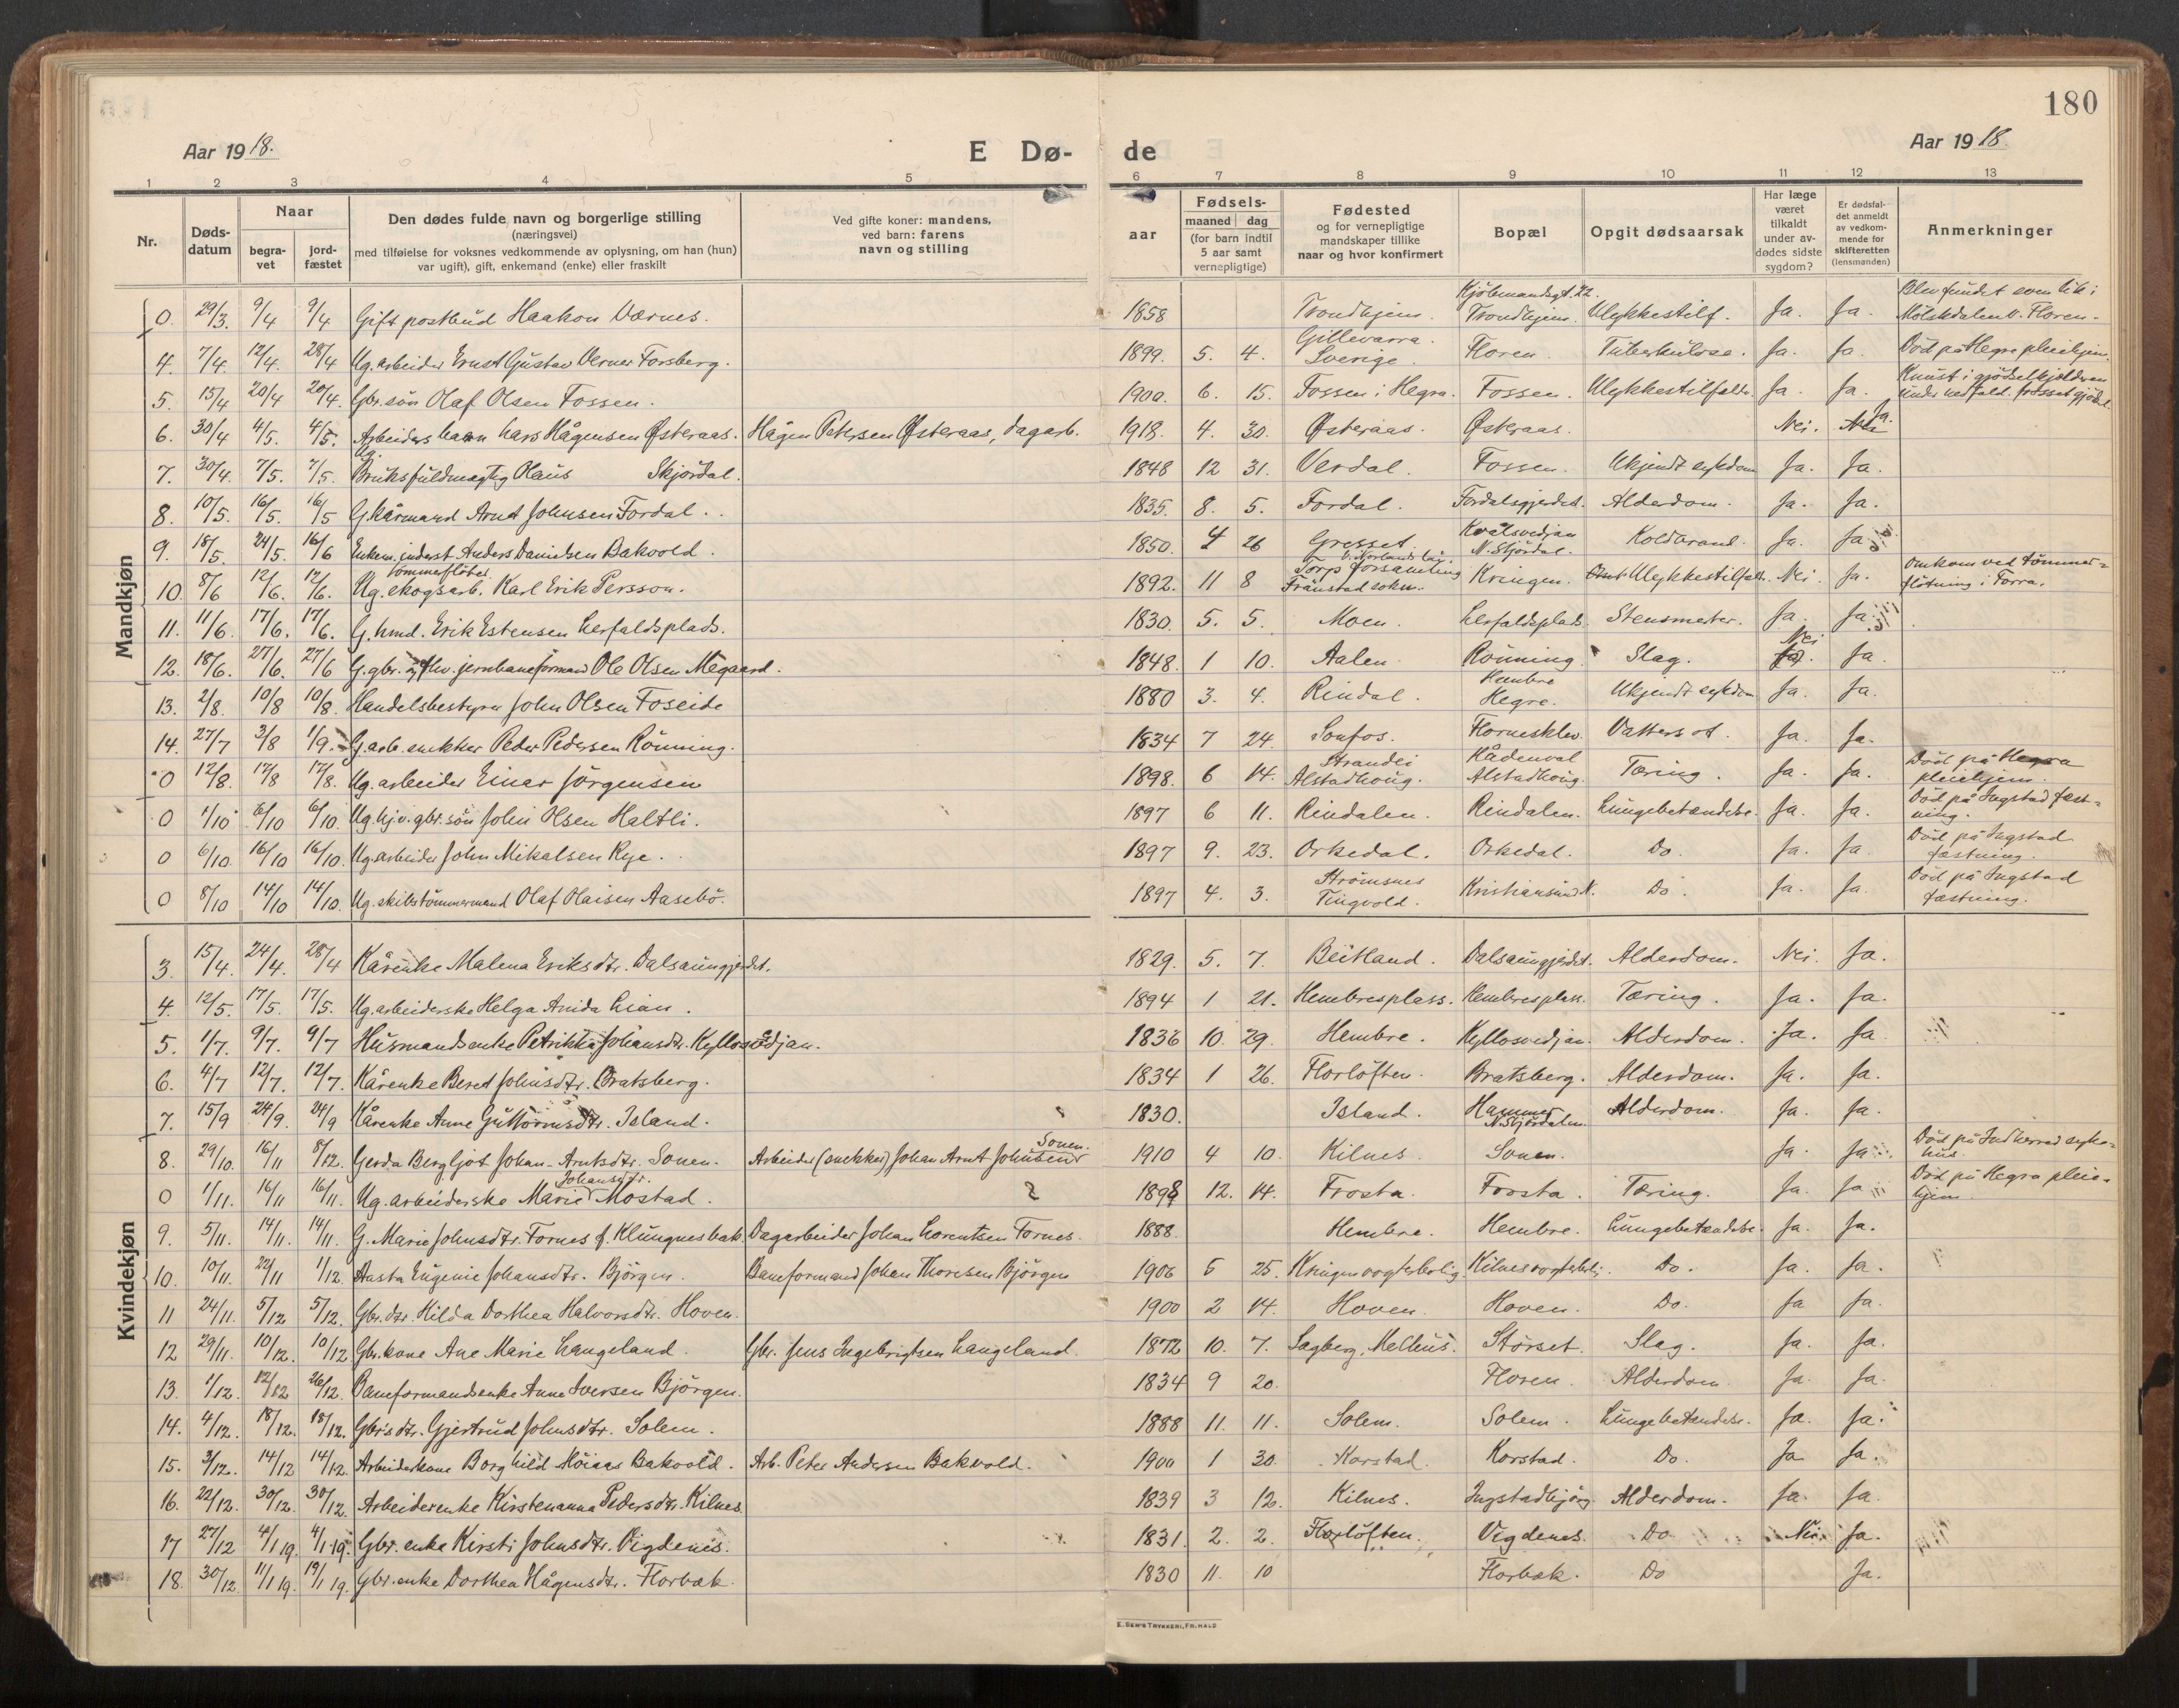 180
Aar 1918. E Dø- de Aar 1918.
1 2 3 4 5 6 7 8 9 10 11 12 13
Nr. Døds-datum Naar begra-vet jord-fæstet Den dødes fulde navn og borgerlige stilling (næringsvei) med tilføielse for voksnes vedkommende av oplysning, om han (hun) var ugift), gift, enkemand (enke) eller fraskilt Ved gifte koner: mandens, ved barn: farens navn og stilling aar Fødsels- maaned dag (for barn indtil 5 aar samt vernepligtige) Fødested og for vernepligtige mandskaper tillike naar og hvor konfirmert Bopæl Opgit dødsaarsak Har læge været tilkaldt under av-dødes sidste sygdom? Er dødsfal-det anmeldt av vedkom-mende for skifteretten (lensmanden) Anmerkninger
Mandkjøn
0. 29/3. 9/4 9/4 Gift postbud Haakon Værnes. 1858 Trondhjem. Kjøbmandsgt. 22. Trondhjem. Ulykkestilf. Ja. Ja. Blev fundet som lik i Mölskdalen v. Floren.
4. 7/4. 12/4. 28/4 Ug. arbeider Ernst Gustav Verner Forsberg. 1899. 5. 4. Gillevarra. Sverige. Floren. Tuberkulose. Ja. Ja. Död på Hegra pleiehjem.
5. 15/4 20/4 20/4. Gbr. sön Olaf Olsen Fossen. 1900. 6. 15. Fossen i Hegra. Fossen. Ulykkestilfælde. Ja. Ja. Knust i gjödselkjelderen under nedfald. frosset gjödsel.
6. 30/4 4/5. 4/5. Arbeiders barn Lars Hågensen Østeraas. Hågen Petersen Østeraas, dagarb. 1918. 4. 30. Østeraas. Østeraas. Nei. Ja.
7. 30/4. 7/5. 7/5. Ug. Bruksfuldmægtig Olaus Skjördal. 1848 12 31. Verdal. Fossen. Ukjendt sykdom Ja. Ja.
8. 10/5. 16/5. 16/5 G. kårmand Arnt Johnsen Fordal. 1835. 8. 5. Fordal. Fordalsgjerdet. Alderdom. Ja. Ja.
9. 18/5. 24/5. 16/6 Enkem. inderst Anders Danielsen Bakvold. 1850. 4 26 Gresset. Kvålsvedjan N. Stjördal. Koldbrand. Ja. Ja.
10. 8/6 12/6. 12/6. Ug. skogsarb. tömmerflöter Karl Erik Persson. 1892. 11 8 Torps forsamling Fränstad sokn. Kringen. Ulykkestilfælde. Nei. Ja. Omkom ved tömmer-flötning i Forra.
11. 11/6. 17/6. 17/6. G. hmd. Erik Estensen Lerfaldsplads. 1830. 5. 5. Moen. Lerfaldsplads. Stensmerter. Ja. Ja.
12. 18/6. 27/6. 27/6 G. gbr. og fhv. jernbaneformand Ole Olsen Megaard. 1848. 1 10. Aalen. Rönning. Slag. Nei Ja.
13. 2/8. 10/8 10/8. Handelsbestyrer John Olsen Foseide 1880 3. 4. Rindal. Hembre Hegre. Ukjendt sykdom Ja. Ja.
14. 27/7 3/8 1/9. G. arb. snekker Peder Pedersen Rönning. 1834 7 24. Sonfos. Flornesklev. Vattersot. Ja. Ja.
0 12/8. 17/8 17/8. Ug. arbeider Einar Jörgensen 1898. 6 14. Strandli Alstadhoug. Alstadhoug. Tæring. Ja. Ja. Död på Hegra pleiehjem.
0 1/10 6/10 6/10. Ug. hjv. gbr. sön John Olsen Haltli. 1897 6 11. Rindalen. Rindalen. Lungebetændelse. Ja. Ja. Död på Ingstad fæst-ning.
0 6/10 16/10 16/10. Ug. arbeider John Mikalsen Rye. 1897 9. 23. Orkedal. Orkedal. Do. Ja. Ja. Död på Ingstad fæstning.
0 8/10 14/10 14/10. Ug. skibstömmermand Olaf Olaisen Aasebö. 1897 4. 3. Strömsnes Tingvold. Kristiansund N. Do. Ja. Ja. Död på Ingstad fæstning.
Kvindekjøn
3. 15/4. 24/4. 28/4 Kårenke Malena Eriksdtr. Dalsaunggjerdet. 1829. 5. 7. Beitland. Dalsaunggjerdet. Alderdom. Nei. Ja.
4. 12/5. 17/5. 17/5. Ug. arbeiderske Helga Amida Lian. 1894 1 21. Hembresplass. Hembresplass. Tæring. Ja. Ja.
5. 1/7. 9/7. 9/7 Husmandsenke Petrikka Johansdtr. Kyllosvedjan. 1836 10. 29. Hembre. Kyllosvedjan. Alderdom. Ja. Ja.
6. 4/7 12/7. 12/7. Kårenke Beret Johnsdtr. Bratsberg. 1834 1 26. Florlöften. Bratsberg. Alderdom. Ja. Ja.
7. 15/9 24/9. 24/9 Kårenke Anne Guttormsdtr. Island. 1830. Island. Hammer N. Stjördalen. Alderdom. Ja. Ja.
8. 29/10. 16/11 8/12. Gerda Bergljot Johan-Arntsdtr. Sonen. Arbeider (snekker) Johan Arnt Johnsen Sonen. 1910 4 10. Kilnes. Sonen. Ja. Ja. Död på Indherred syke-hus.
0 1/11. 16/11 16/11. Ug. arbeiderske Marie Johansdtr. Mostad. 1898 12. 14. Frosta. Frosta. Tæring. Ja. Ja Död på Hegra pleie-hjem
9. 5/11. 14/11. 14/11. G. Marie Johnsdtr. Fornes f. Klungnesbak. Dagarbeider Johan Lorentsen Fornes. 1888. Hembre. Hembre. Lungebetændelse. Ja. Ja.
10. 10/11. 22/11 1/12. Aasta Eugenie Johansdtr. Björgen. Baneformand Johan Thoresen Björgen 1906 5 25. Kringen vogterbolig. Kilnes vogterbolig. Do. Ja. Ja.
11 24/11. 5/12 5/12. Gbr. dtr. Hilda Dorthea Halvorsdtr. Hoven. 1900 2 14. Hoven. Hoven. Do. Ja Ja.
12 29/11. 10/12. 10/12 Gbr. kone Ane Marie Langeland. Gbr. Jens Ingebrigtsen Langeland. 1872 10. 7. Sagberg, Melhus. Störset. Slag. Ja. Ja.
13. 1/12. 12/12 26/12. Baneformandsenke Anne Iversen Björgen. 1834 9 20. Floren. Alderdom. Ja. Ja.
14. 4/12. 18/12. 18/12. Gbr's dtr. Gjertrud Johnsdtr. Solem. 1888 11. 11. Solem. Solem. Lungebetændelse. Ja. Ja.
15. 3/12. 14/12 14/12. Arbeiderkone Borghild Moiaas Bakvold. Arb. Peter Andersen Bakvold. 1900 1 30. Korstad. Korstad. Do. Ja Ja.
16. 22/12. 30/12. 30/12. Arbeiderenke Kirstenanna Pedersdtr. Kilnes 1839 3 12. Kilnes. Ingstadbjörg. Alderdom. Ja. Ja.
17 27/12 4/1 19. 4/1 19. Gbr. enke Kirsti Johnsdtr. Vigdenes. 1831. 2. 2. Florlöften. Vigdenes. Do Nei. Ja.
18. 30/12. 11/1 19. 19/1 19. Gbr. enke Dorthea Hågensdtr. Florbak. 1830 11. 10 Florbak. Do Ja.
E. SEM'S TRYKKERI, FR.HALD